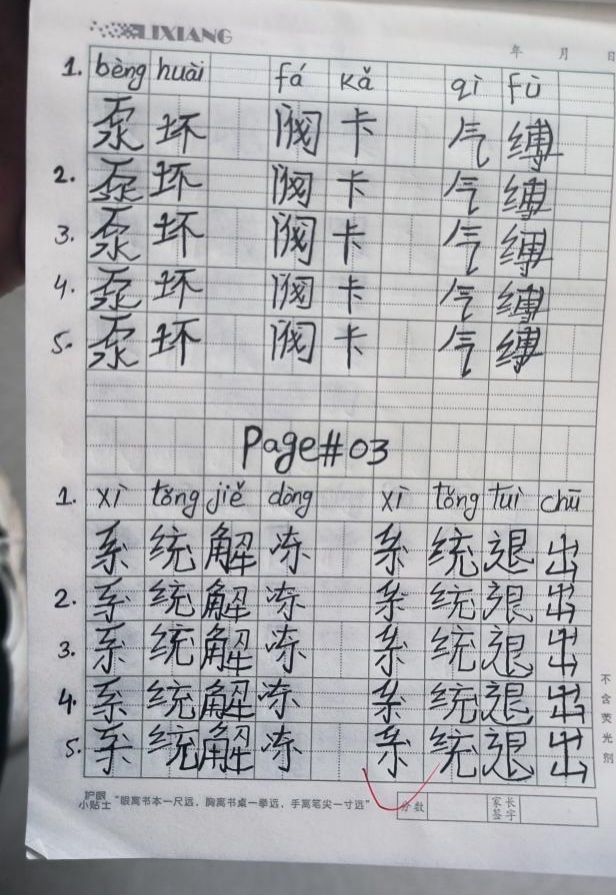 LIXIANG
年 月 日
1. bèng huài fá kǎ qì fù
泵坏 阀卡 气缚
2. 泵坏 阀卡 气缚
3. 泵坏 阀卡 气缚
4. 泵坏 阀卡 气缚
5. 泵坏 阀卡 气缚
Page#03
1. xì tǒng jiě dòng xì tǒng tuì chū
系统解冻 系统退出
2. 系统解冻 系统退出
3. 系统解冻 系统退出
4. 系统解冻 系统退出
5. 系统解冻 系统退出
不含荧光剂
护眼小贴士 "眼离书本一尺远，胸离书桌一拳远，手离笔尖一寸远"
分数 家长签字